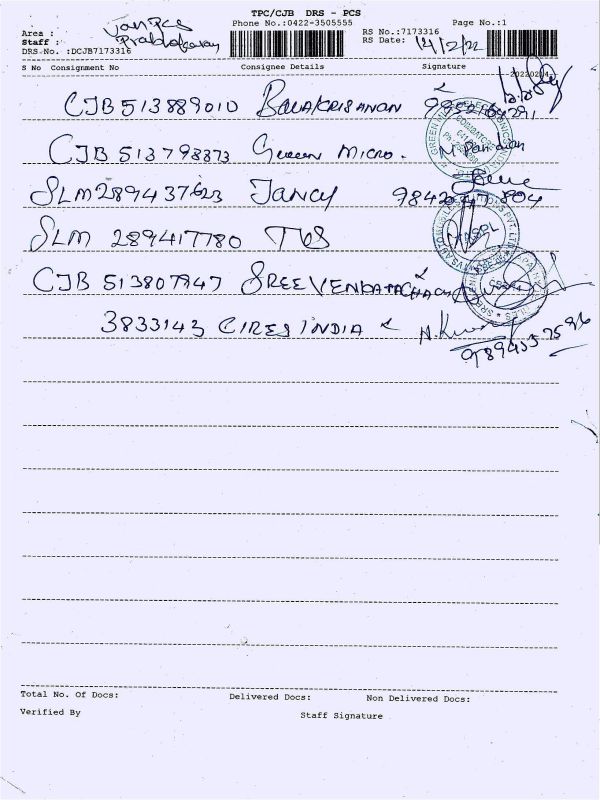 TPC/CJB DRS - PCS
Phone No.:0422-3505555
Page No.:1
Area : Van PCS
Staff : Prabhakaran
DRS-No. :DCJB7173316
RS No.:7173316
RS Date: 14/2/22
S No Consignment No Consignee Details Signature
CJB 513889010 BALAKRISANAN
CJB 513798373 Green Micro. M. Pandian
SLM 289437623 Jancy
SLM 289417780 TVS
CJB 513807947 SREE VENDATACHACH
3833143 CIRES INDIA
Total No. Of Docs: Delivered Docs: Non Delivered Docs:
Verified By Staff Signature